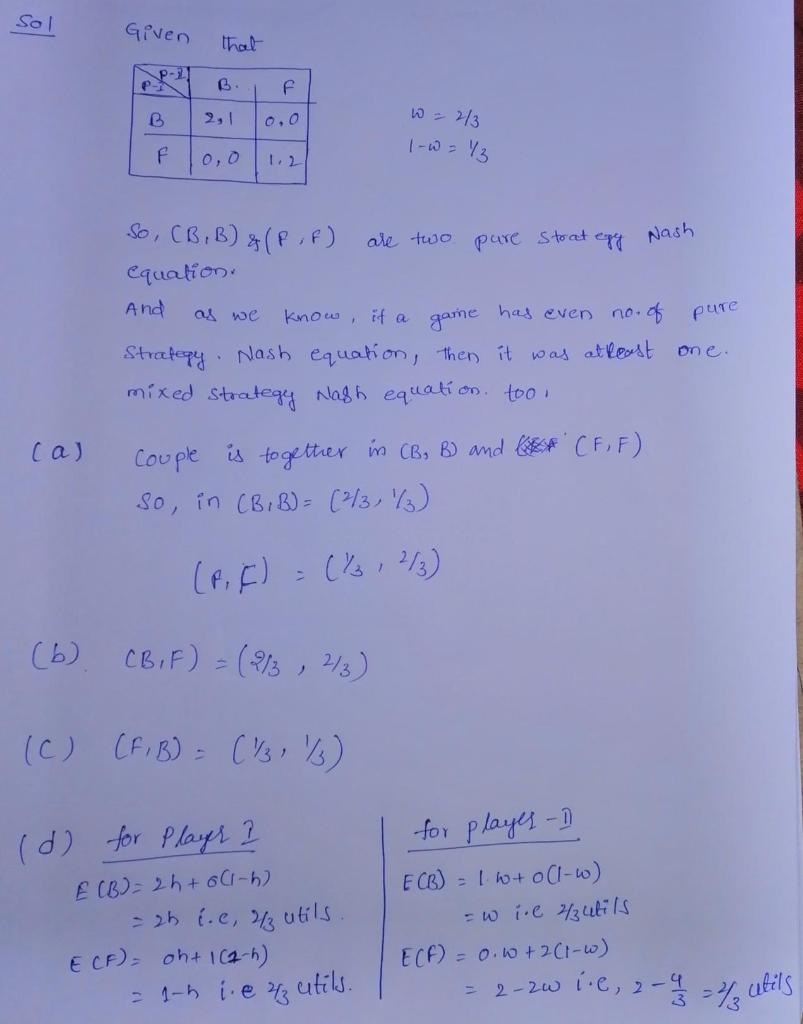 Sol
Given that
P-I P-II B. F
B 2,1 0,0
F 0,0 1,2
w = 2/3
1-w = 1/3
So, (B,B) & (F,F) are two pure strategy Nash
equation.
And as we know, if a game has even no. of pure
Strategy. Nash equation, then it was atleast one.
mixed strategy Nash equation. too,
(a) Couple is together in (B, B) and (F,F)
So, in (B,B) = (2/3, 1/3)
(F,F) = (1/3, 2/3)
(b) (B,F) = (2/3, 2/3)
(c) (F,B) = (1/3, 1/3)
(d) for Player I
E(B) = 2h + 0(1-h)
= 2h i.e, 2/3 utils.
E(F) = 0h + 1(1-h)
= 1-h i.e 2/3 utils.
for player - II
E(B) = 1.w + 0(1-w)
= w i.e 2/3 utils
E(F) = 0.w + 2(1-w)
= 2-2w i.e, 2 - 4/3 = 2/3 utils